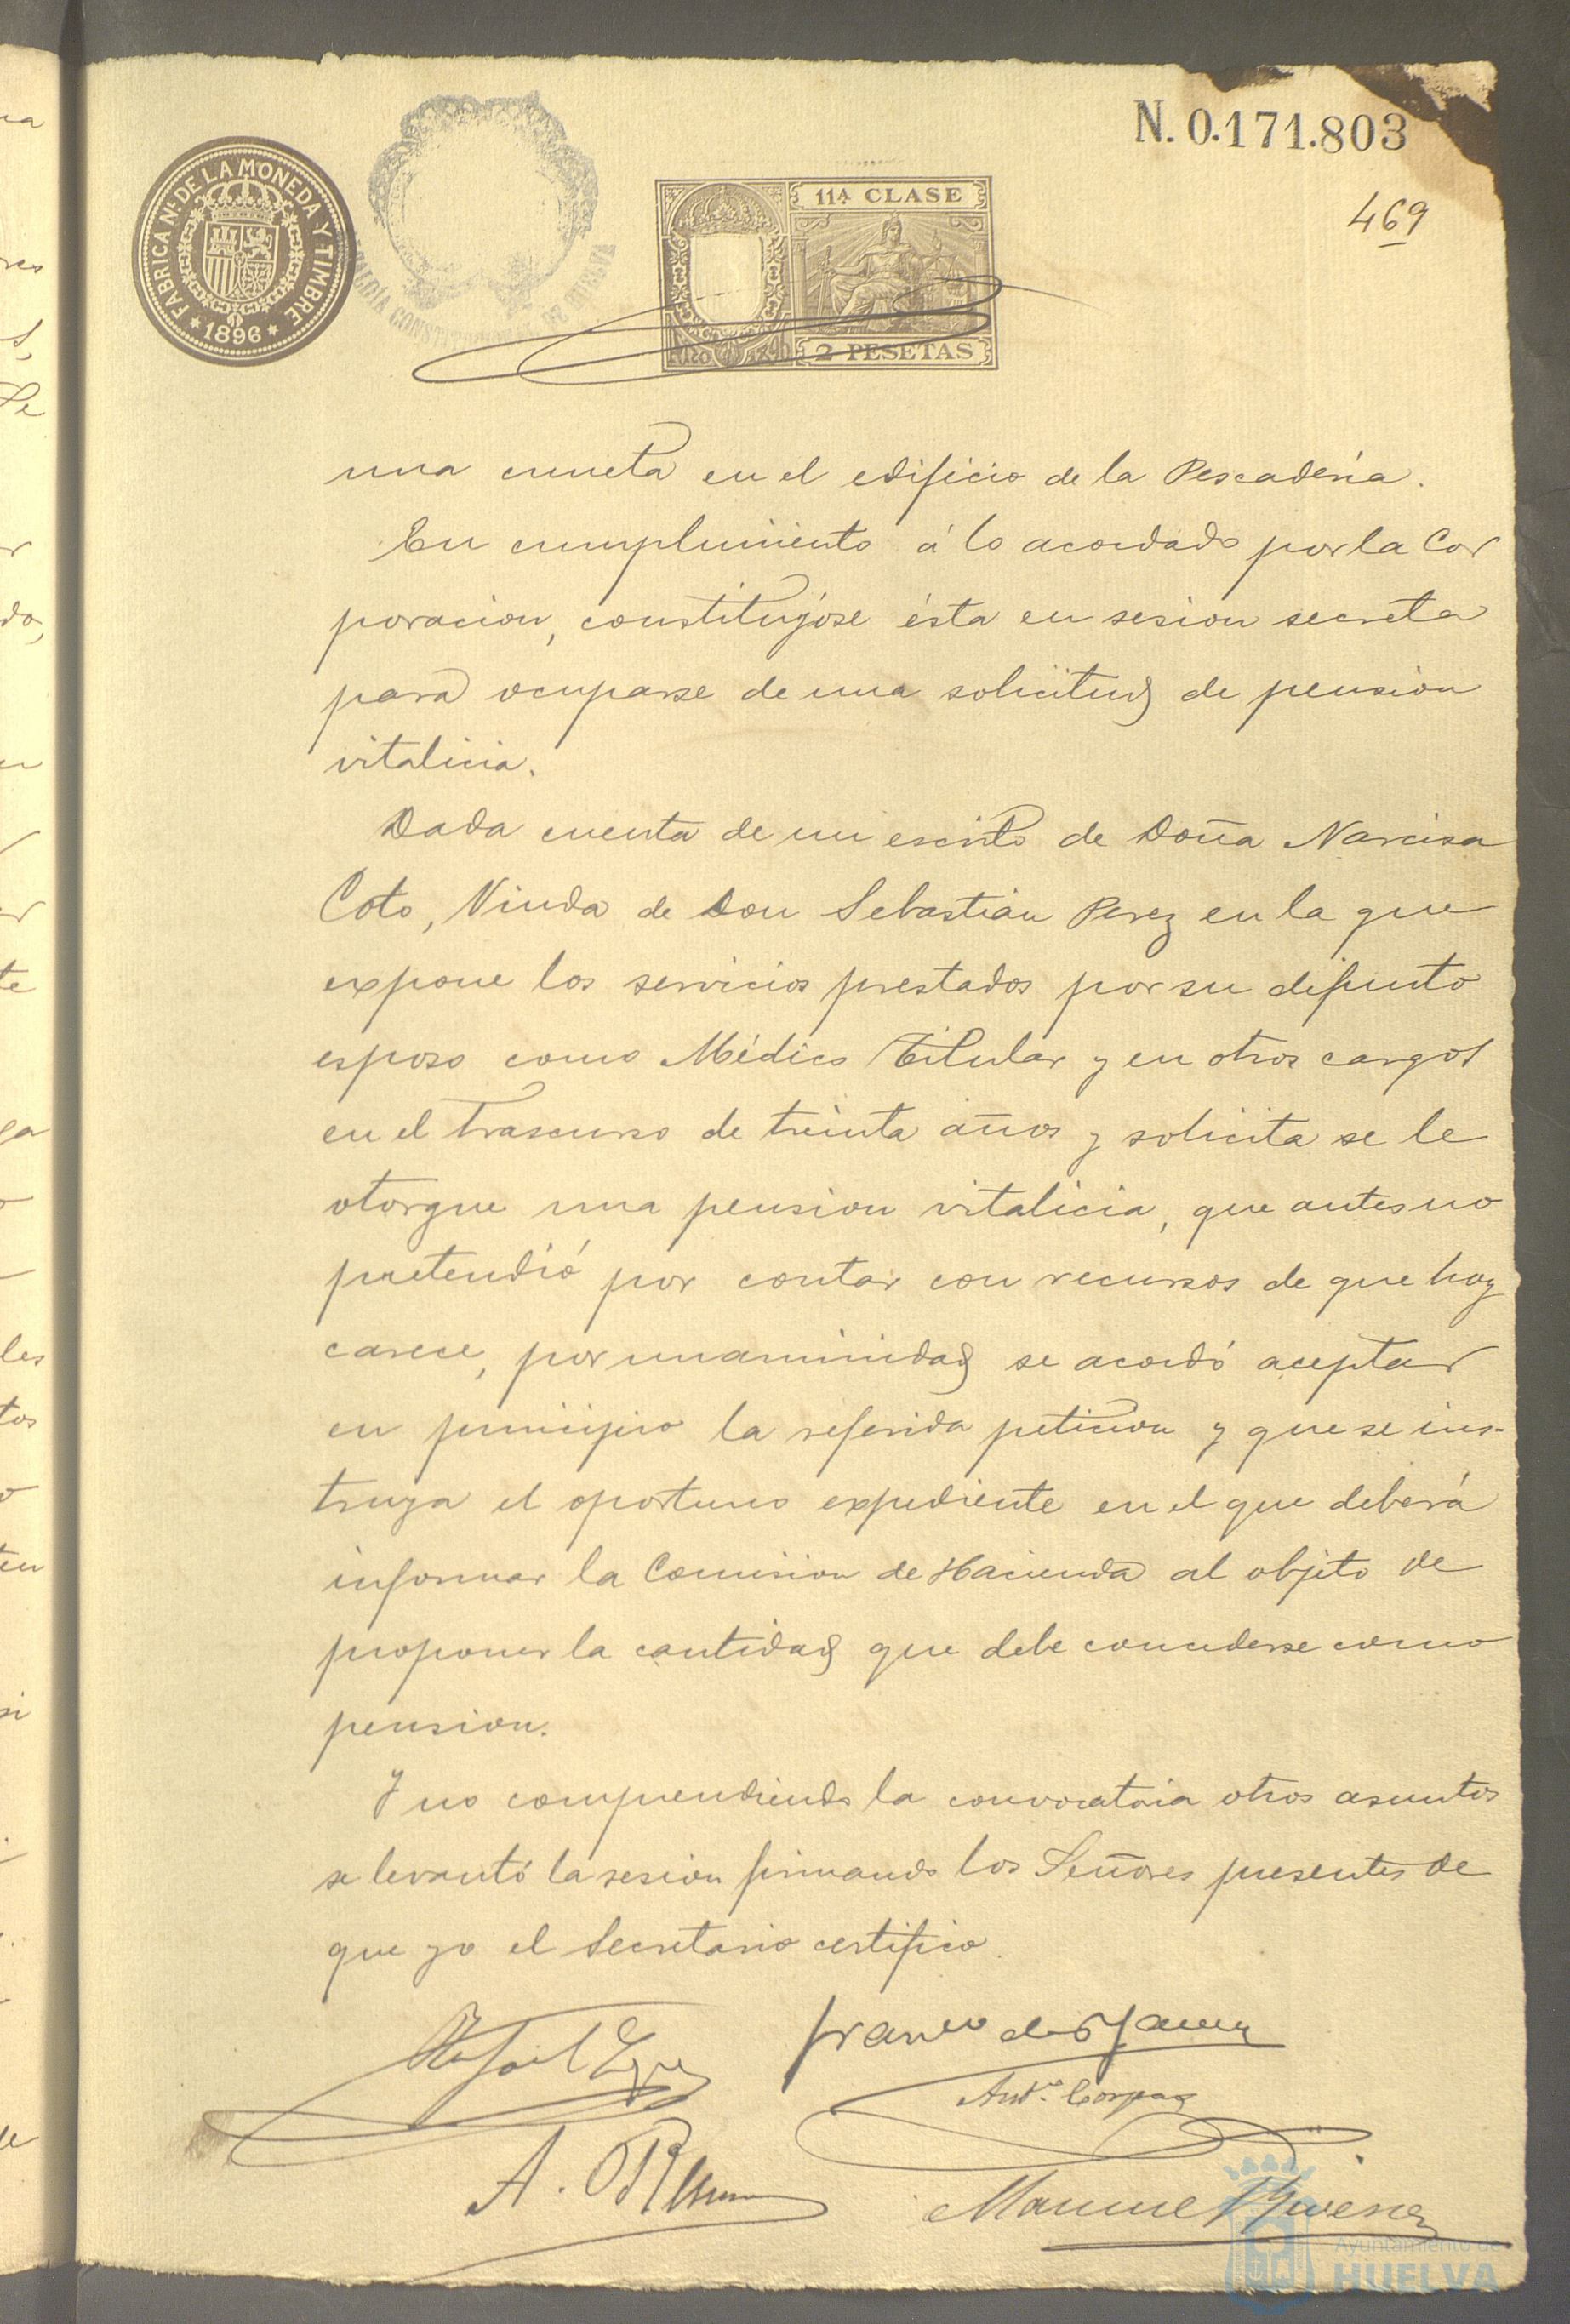 N. 0.171.803
469
FABRICA Nl. DE LA MONEDA Y TIMBRE
* 1896 *
11ª CLASE
2 PESETAS
una cuneta en el edificio de la Pescadería.
En cumplimiento á lo acordado por la Cor
poracion, constituyóse ésta en sesion secreta
para ocuparse de una solicitud de pension
vitalicia.
Dada cuenta de un escrito de Doña Narcisa
Coto, Viuda de Don Sebastián Perez en la que
expone los servicios prestados por su difunto
esposo como Médico Titular y en otros cargos
en el trascurso de treinta años y solicita se le
otorgue una pension vitalicia, que antes no
pretendió por contar con recursos de que hoy
carece, por unanimidad se acordó aceptar
en principio la referida peticion y que se ins-
truya el oportuno expediente en el que deberá
informar la Comision de Hacienda al objeto de
proponer la cantidad que debe concederse como
pension.
Y no comprendiendo la convocatoria otros asuntos
se levantó la sesion firmando los Señores presentes de
que yo el Secretario certifico.
Rafael
Ant.º Corpas
A.
Manuel
Ayuntamiento de
HUELVA